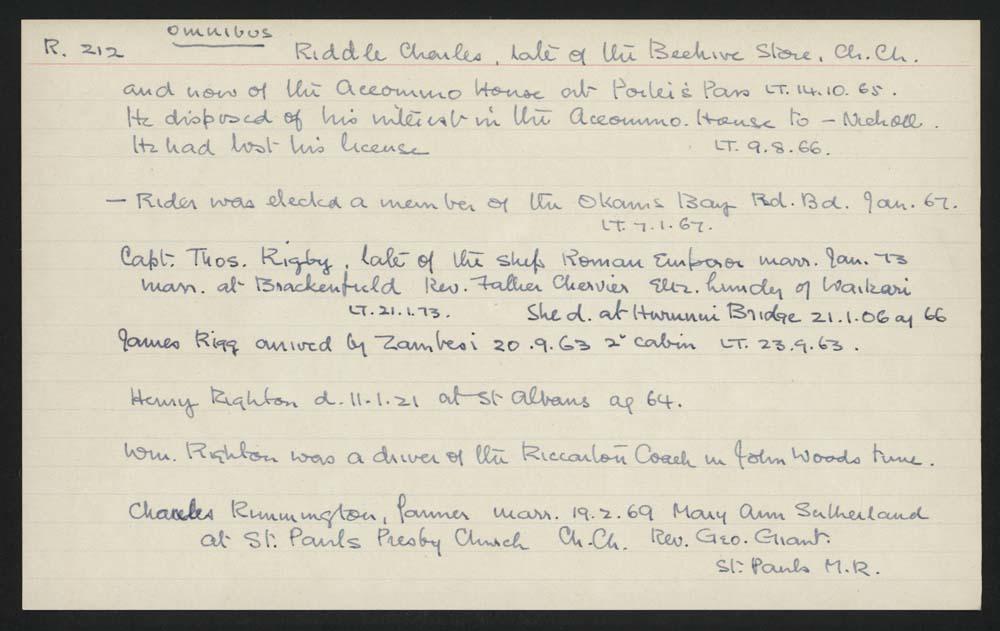 Omnibus
R. 212 Riddle Charles, late of the Beehive Store, Ch.Ch.
and now of the Accommo House at Porter's Pass LT. 14.10.65.
He disposed of his interest in the Accommo. House to – Nicholl.
He had lost his license LT. 9.8.66.
– Rider was elected a member of the Okains Bay Rd. Bd. Jan. 67.
LT. 7.1.67.
Capt. Thos. Rigby, late of the ship Roman Emperor marr. Jan. 73
marr. at Brackenfield Rev. Father Chervier Eliz. of Waikari
LT. 21.1.73. She d. at Hurunui Bridge 21.1.06 ag 66
James Rigg arrived by Zambesi 20.9.63 2° cabin LT. 23.9.63.
Henry Righton d. 11.1.21 at St Albans ag 64.
Wm. Righton was a driver of the Riccarton Coach in John Woods time.
Charles Rimmington, farmer marr. 19.2.69 Mary Ann Sutherland
at St. Pauls Presby Church Ch.Ch. Rev. Geo. Grant.
St. Pauls M.R.